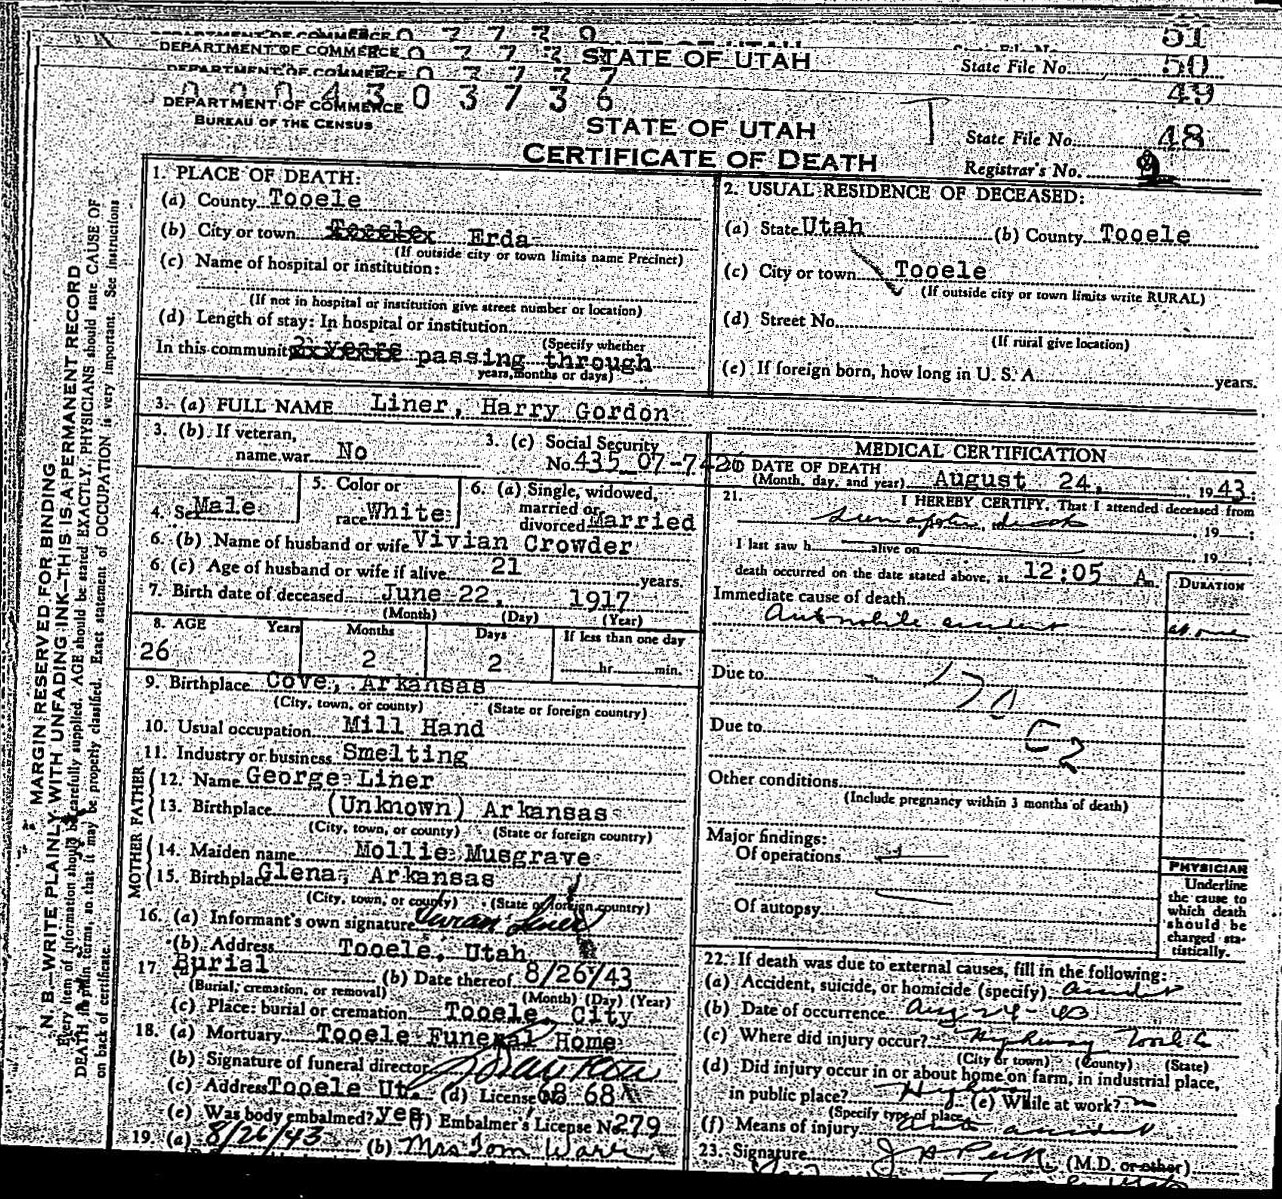 51
DEPARTMENT OF COMMERCE
STATE OF UTAH
State File No. 50
DEPARTMENT OF COMMERCE
49
0004303736
DEPARTMENT OF COMMERCE
BUREAU OF THE CENSUS
STATE OF UTAH
CERTIFICATE OF DEATH
State File No. 48
Registrar's No. 9
MARGIN RESERVED FOR BINDING
N. B.—WRITE PLAINLY WITH UNFADING INK—THIS IS A PERMANENT RECORD
Every item of information should be carefully supplied. AGE should be stated EXACTLY. PHYSICIANS should state CAUSE OF
DEATH in plain terms, so that it may be properly classified. Exact statement of OCCUPATION is very important. See instructions
on back of certificate.
1. PLACE OF DEATH:
(a) County Tooele
(b) City or town Erda
(If outside city or town limits name Precinct)
(c) Name of hospital or institution:
(If not in hospital or institution give street number or location)
(d) Length of stay: In hospital or institution
(Specify whether
In this community passing through
years, months or days)
2. USUAL RESIDENCE OF DECEASED:
(a) State Utah (b) County Tooele
(c) City or town Tooele
(If outside city or town limits write RURAL)
(d) Street No.
(If rural give location)
(e) If foreign born, how long in U. S. A. years.
3. (a) FULL NAME Liner, Harry Gordon
3. (b) If veteran,
name war No
3. (c) Social Security
No. 435-07-742
4. Sex Male
5. Color or
race White
6. (a) Single, widowed,
married or
divorced Married
6. (b) Name of husband or wife Vivian Crowder
6. (c) Age of husband or wife if alive 21 years.
7. Birth date of deceased June 22, 1917
(Month) (Day) (Year)
8. AGE Years Months Days If less than one day
26 2 2 hr. min.
9. Birthplace Cove, Arkansas
(City, town, or county) (State or foreign country)
10. Usual occupation Mill Hand
11. Industry or business Smelting
FATHER
12. Name George Liner
13. Birthplace (Unknown) Arkansas
(City, town, or county) (State or foreign country)
MOTHER
14. Maiden name Mollie Musgrave
15. Birthplace Glena, Arkansas
(City, town, or county) (State or foreign country)
16. (a) Informant's own signature Vivian Liner
(b) Address Tooele, Utah
17. Burial (b) Date thereof 8/26/43
(Burial, cremation, or removal) (Month) (Day) (Year)
(c) Place: burial or cremation Tooele City
18. (a) Mortuary Tooele Funeral Home
(b) Signature of funeral director
(c) Address Tooele Ut. (d) License 68
(e) Was body embalmed? yes (f) Embalmer's License No 279
19. (a) 8/26/43 (b) Mrs Tom Warr
MEDICAL CERTIFICATION
20 DATE OF DEATH
(Month, day, and year) August 24, 1943
21. I HEREBY CERTIFY, That I attended deceased from
, 19
I last saw h alive on 19
death occurred on the date stated above, at 12:05 A m.
DURATION
Immediate cause of death
Automobile accident at once
Due to
170
Due to
C2
Other conditions
(Include pregnancy within 3 months of death)
Major findings:
Of operations
Of autopsy
PHYSICIAN
Underline
the cause to
which death
should be
charged sta-
tistically.
22. If death was due to external causes, fill in the following:
(a) Accident, suicide, or homicide (specify) accident
(b) Date of occurrence Aug 24-43
(c) Where did injury occur? Highway Tooele
(City or town) (County) (State)
(d) Did injury occur in or about home on farm, in industrial place,
in public place? Highway (e) While at work? no
(Specify type of place)
(f) Means of injury auto accident
23. Signature J H Peck (M.D. or other)